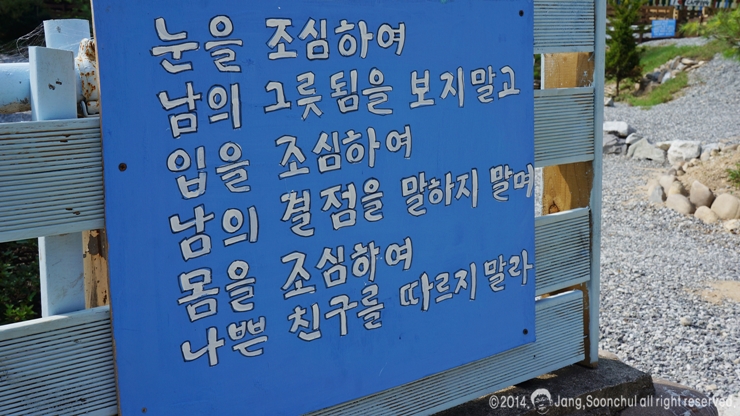 눈을 조심하여
남의 그릇됨을 보지말고
입을 조심하여
남의 결점을 말하지 말며
몸을 조심하여
나쁜 친구를 따르지말라
©2014. Jang,Soonchul all right reserved.